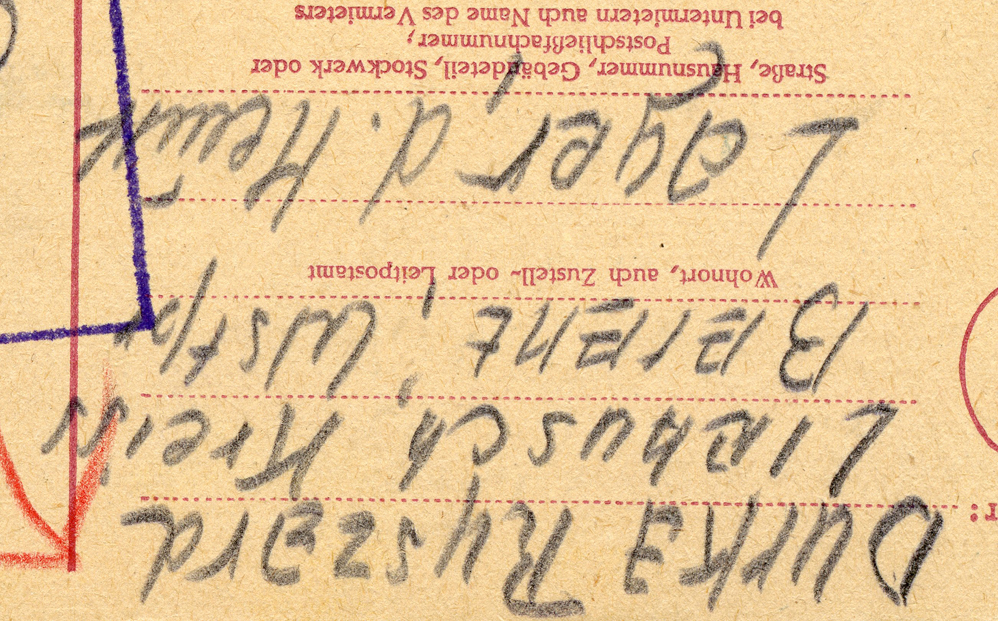 r: Durka Ryszard
Kreis
Berent, Wstpr
Wohnort, auch Zustell- oder Leitpostamt
Lager, d.
Straße, Hausnummer, Gebäudeteil, Stockwerk oder
Postschließfachnummer;
bei Untermietern auch Name des Vermieters